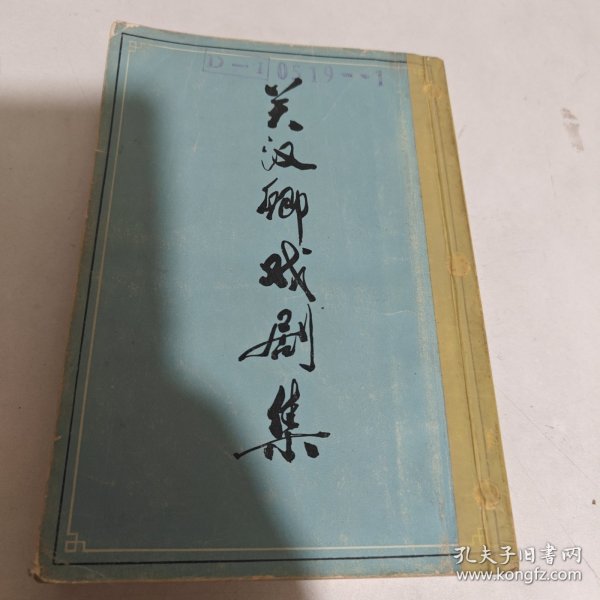 D-1 0519--1
关汉卿戏剧集
孔夫子旧书网
www.kongfz.com